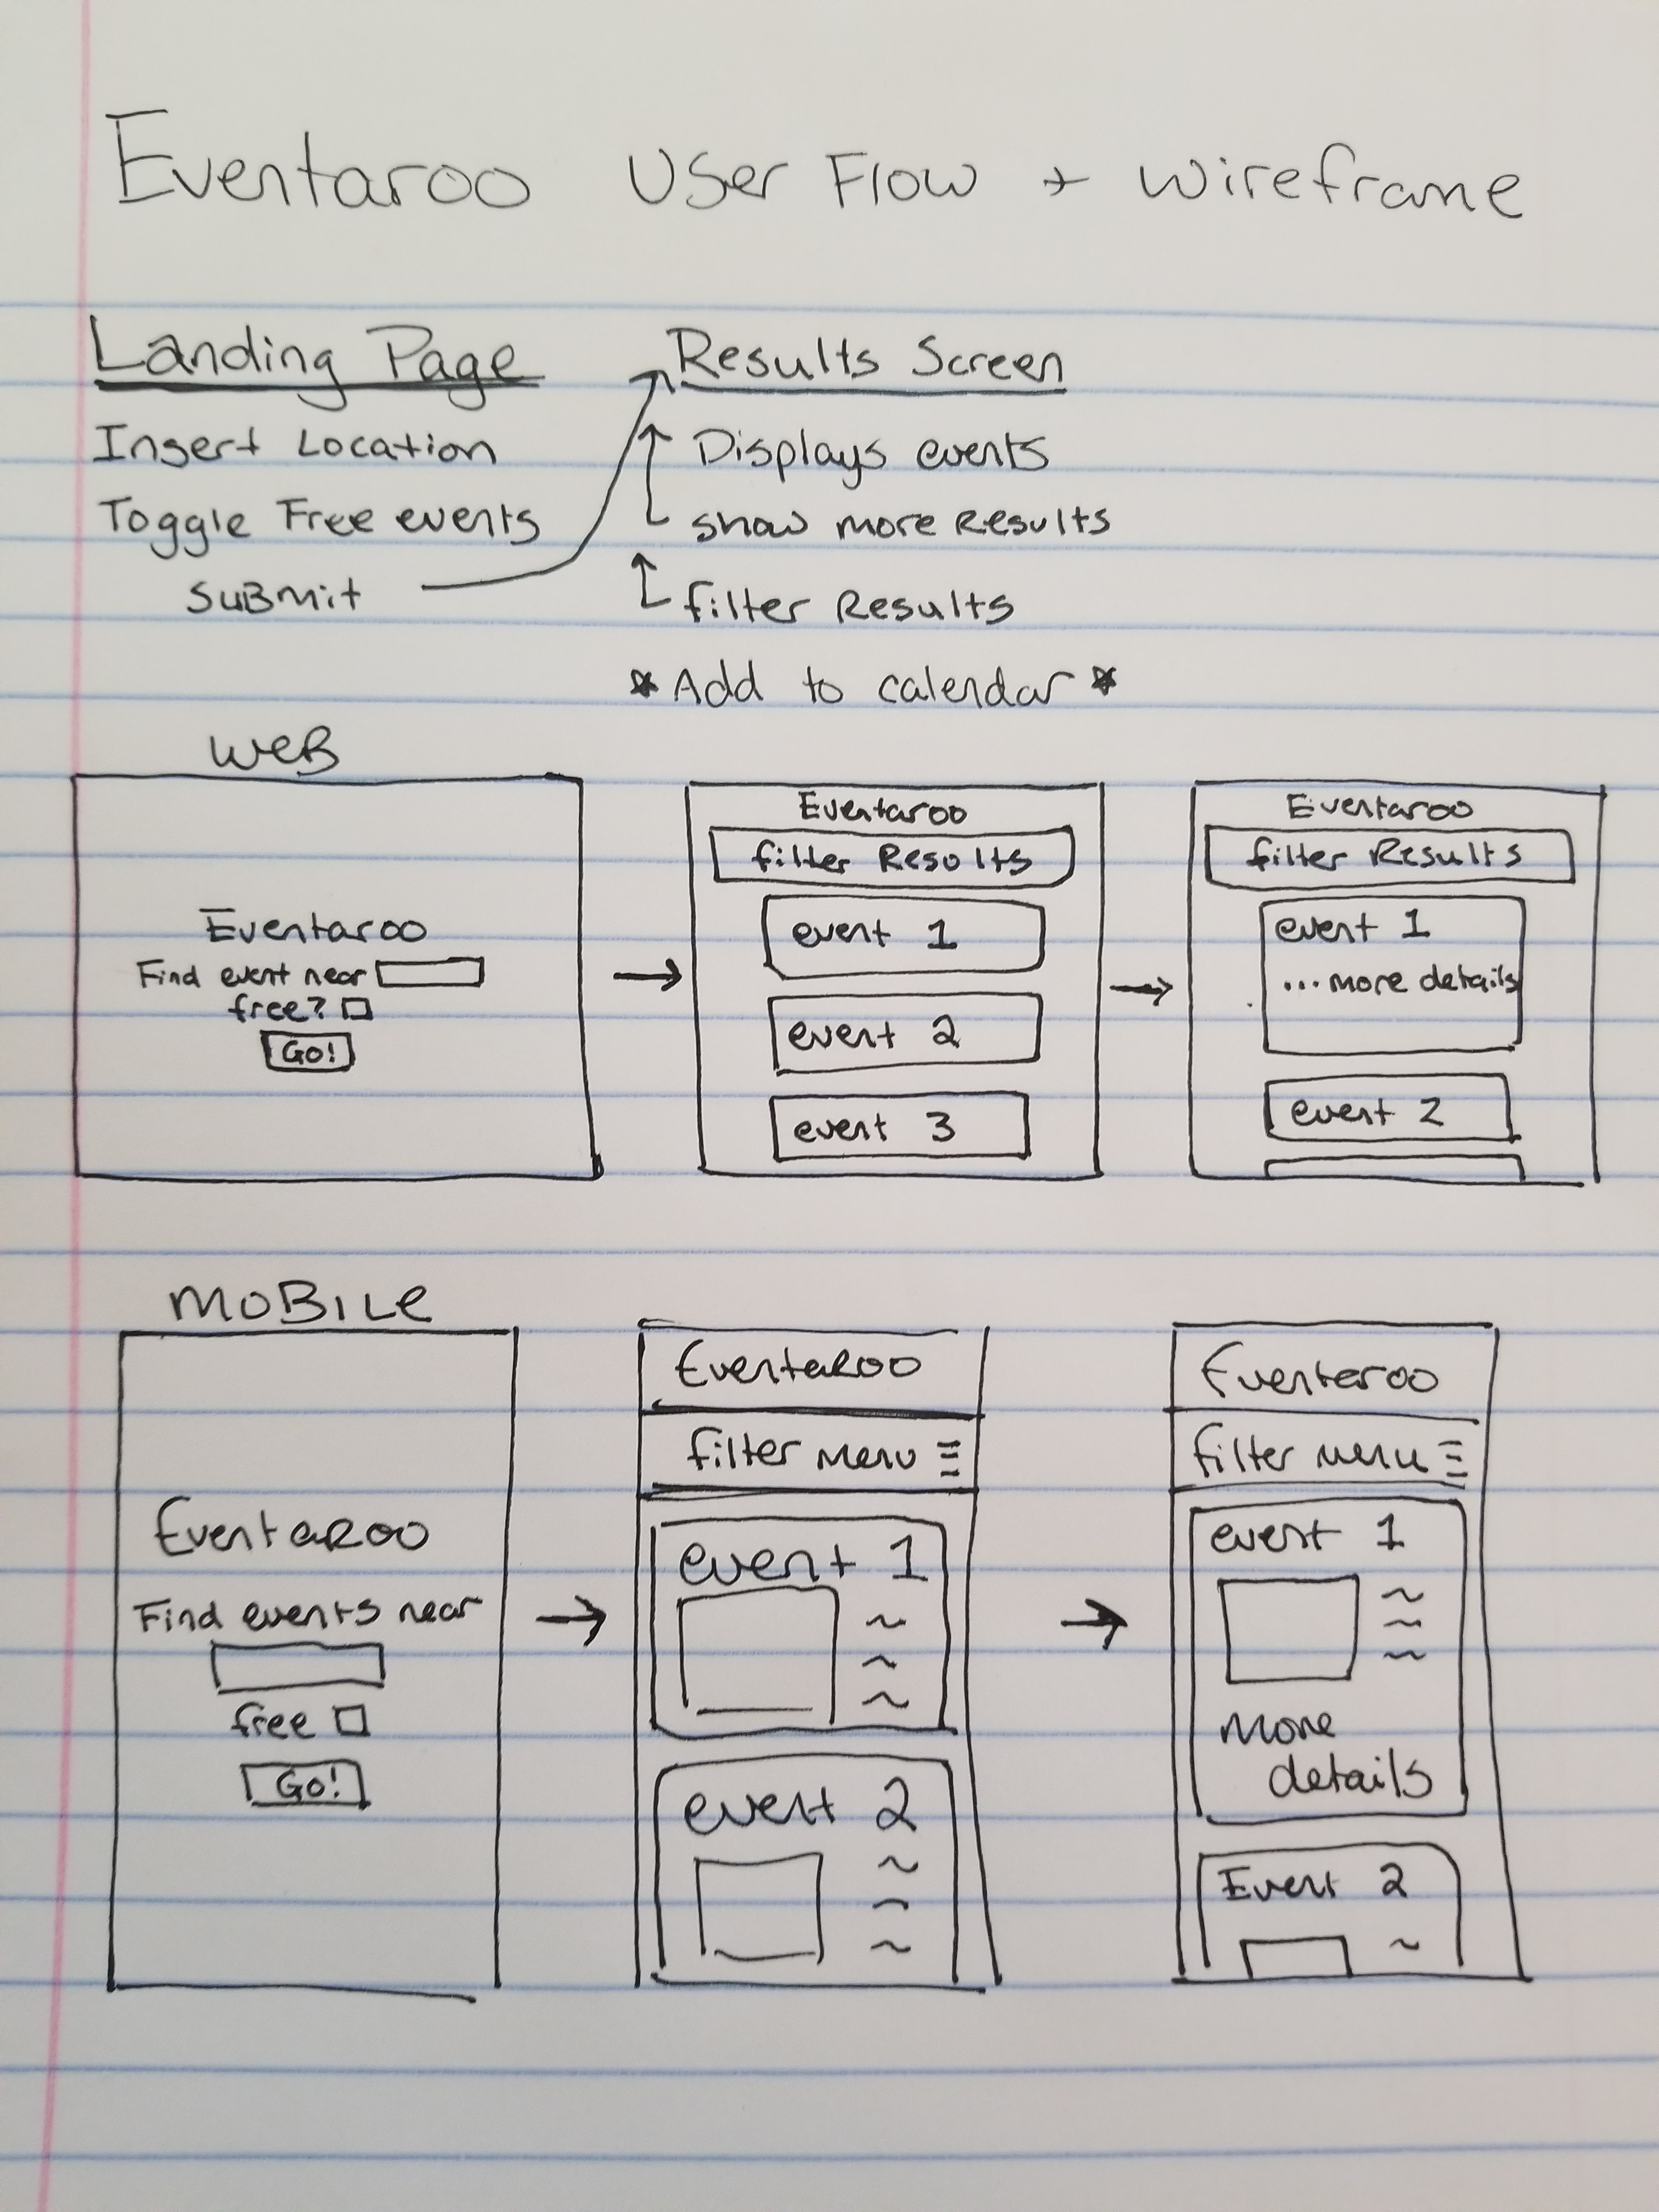 Eventaroo User Flow + Wireframe
Landing Page
Insert Location
Toggle Free events
Submit
Results Screen
Displays events
show more Results
filter Results
* Add to calendar *
WEB
Eventaroo
Find event near
free?
Go!
Eventaroo
filter Results
event 1
event 2
event 3
Eventaroo
filter Results
event 1
...more details
event 2
MOBILE
Eventaroo
Find events near
free
Go!
Eventaroo
filter menu
event 1
event 2
Eventaroo
filter menu
event 1
More
details
Event 2